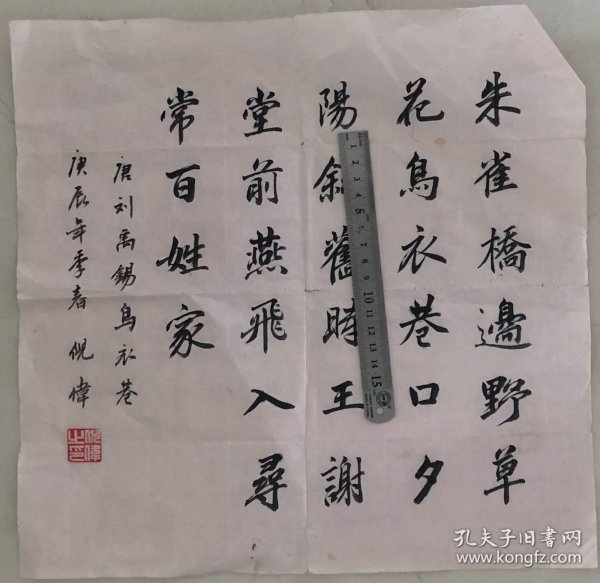 朱雀橋邊野草
花烏衣巷口夕
陽斜舊時王謝
堂前燕飛入尋
常百姓家
唐刘禹錫烏衣巷
庚辰年季春 倪偉
倪偉之印
1 2 3 4 5 6 7 8 9 10 11 12 13 14 15
孔夫子旧书网
www.kongfz.com